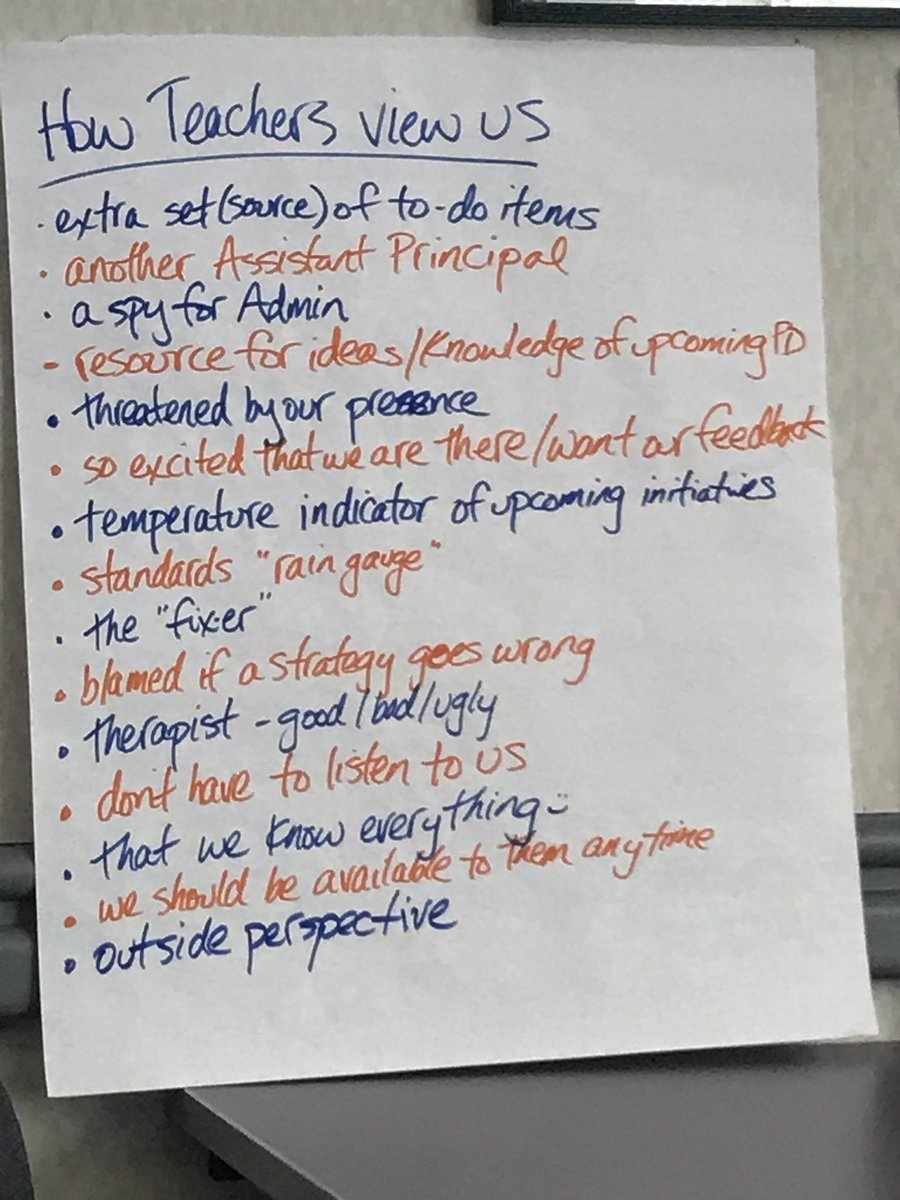 How Teachers view us
· extra set (source) of to-do items
· another Assistant Principal
· a spy for Admin
- resource for ideas/knowledge of upcoming PD
• threatened by our presence
• so excited that we are there/want our feedback
• temperature indicator of upcoming initiatives
• standards "rain gauge"
· the "fixer"
• blamed if a strategy goes wrong
• therapist - good/bad/ugly
• don't have to listen to us
• that we know everything :)
• we should be available to them anytime
• outside perspective